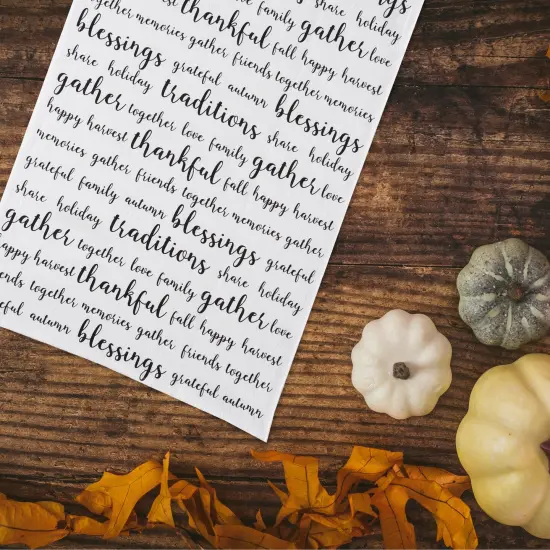 ngs
share holiday
together love family gather love
thankful fall happy harvest
memories gather friends together memories
blessings grateful autumn blessings
share holiday traditions share holiday
gather together love family gather love
happy harvest thankful fall happy harvest
memories gather friends together memories gather
grateful family autumn blessings grateful
share holiday traditions share holiday
gather together love family gather love
happy harvest thankful fall happy harvest
friends together memories gather friends together
autumn blessings grateful autumn